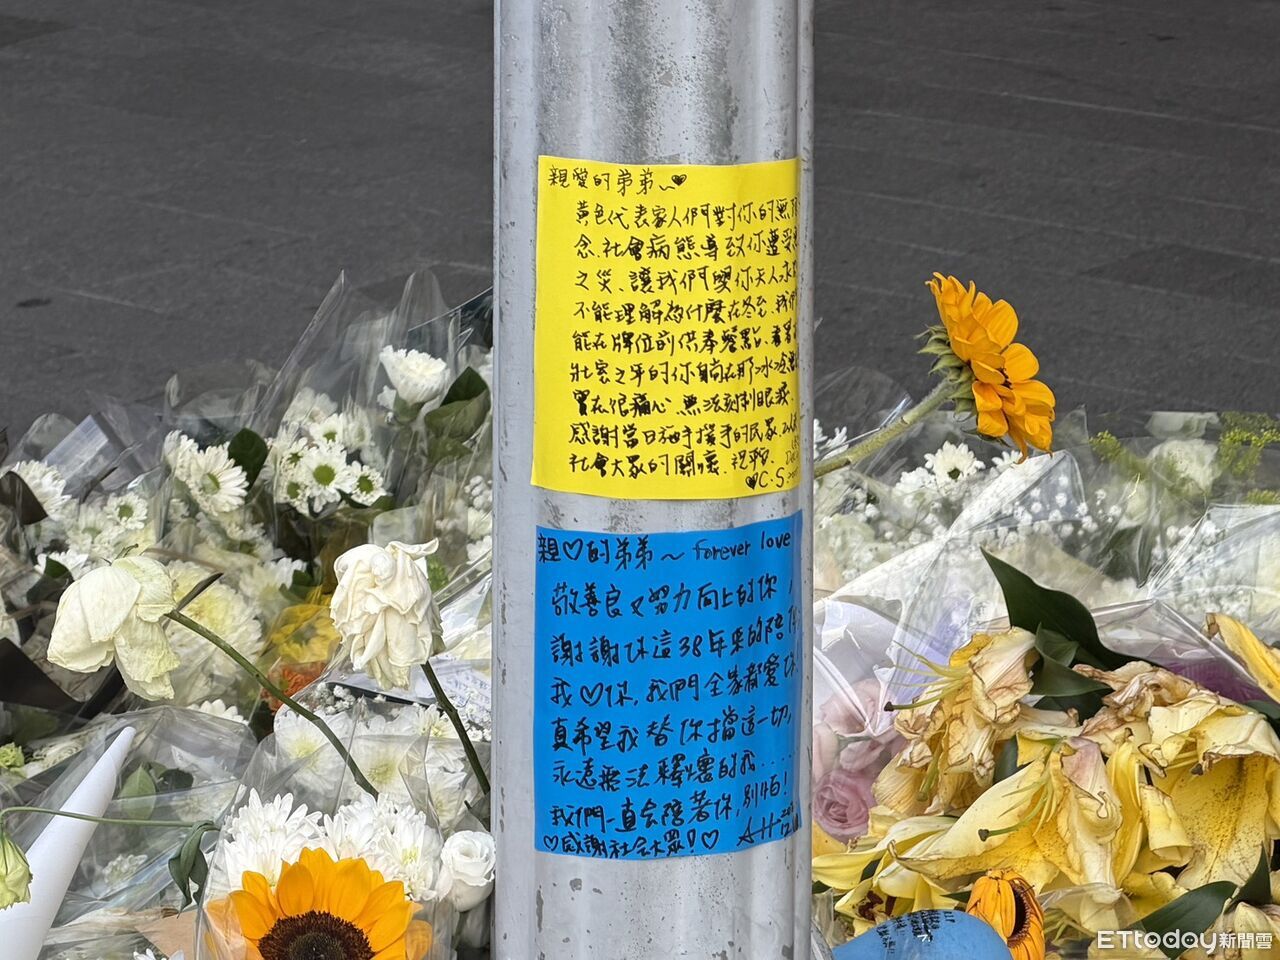 親愛的弟弟~♥
黃色代表家人們對你的無限
念.社會病態導致你遭受
之災、讓我們與你天人永
不能理解為什麼在冬至、我們
能在牌位前供奉餐點、看著
壯年的你躺在那冰冷
實在很痛心、無法
感謝當日施手援手的民眾
社會大眾的關懷.祝平安.
♥C.S
親♡的弟弟~forever love
敬善良又努力向上的你,
謝謝你這38年來的陪伴
我♡你,我們全家都愛你
真希望我替你擋這一切,
永遠無法釋懷的我....
我們一直會陪著你,別怕!
♡感謝社会大眾!♡
ETtoday新聞雲